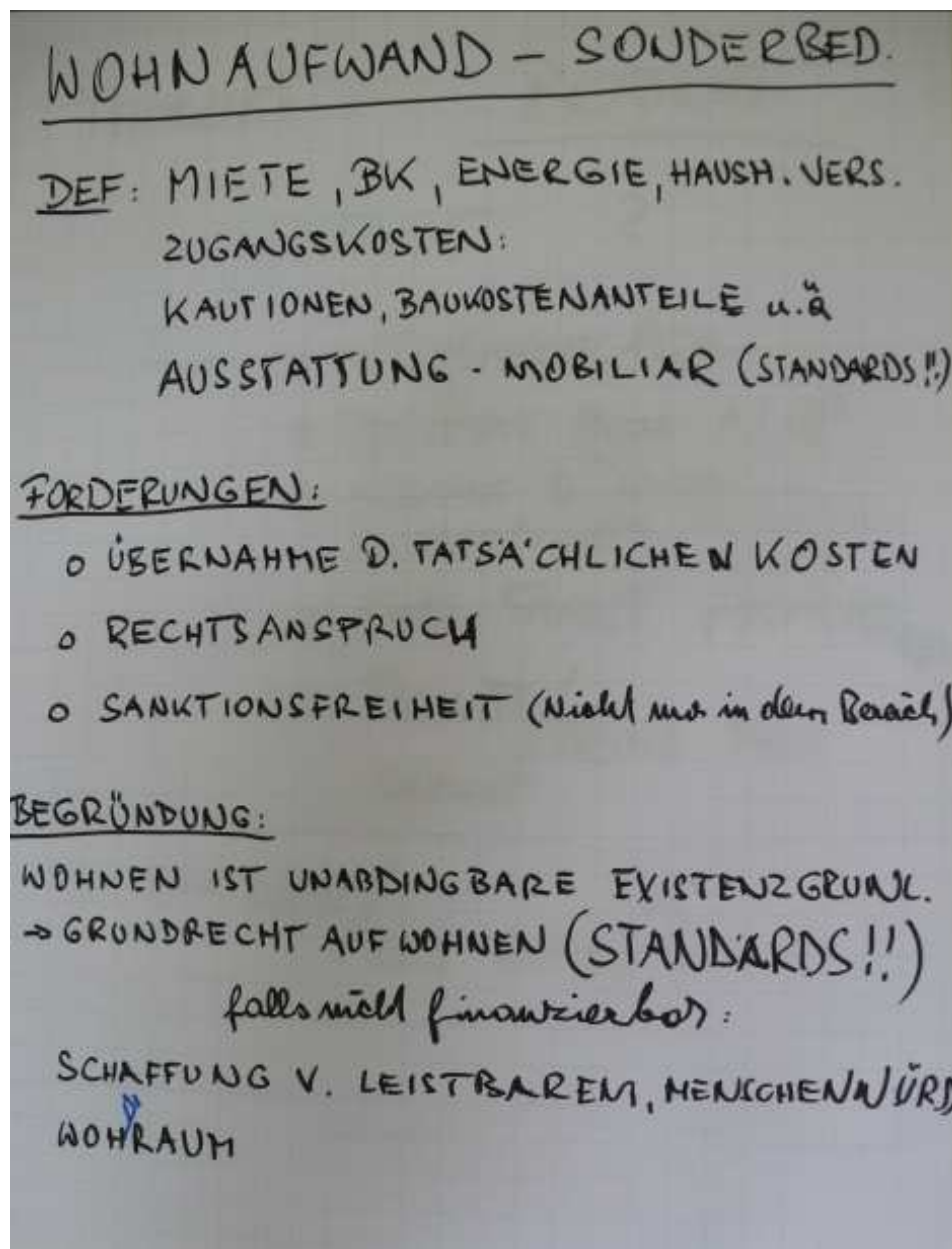 WOHNAUFWAND – SONDERBED.
DEF: MIETE, BK, ENERGIE, HAUSH. VERS.
ZUGANGSKOSTEN:
KAUTIONEN, BAUKOSTENANTEILE u.ä
AUSSTATTUNG - MOBILIAR (STANDARDS!!)
FORDERUNGEN:
o ÜBERNAHME D. TATSÄCHLICHEN KOSTEN
o RECHTSANSPRUCH
o SANKTIONSFREIHEIT (Nicht nur in dem Bereich)
BEGRÜNDUNG:
WOHNEN IST UNABDINGBARE EXISTENZGRUNDL.
→ GRUNDRECHT AUF WOHNEN (STANDARDS!!)
falls nicht finanzierbar:
SCHAFFUNG V. LEISTBAREM, MENSCHENWÜRD
WOHNRAUM